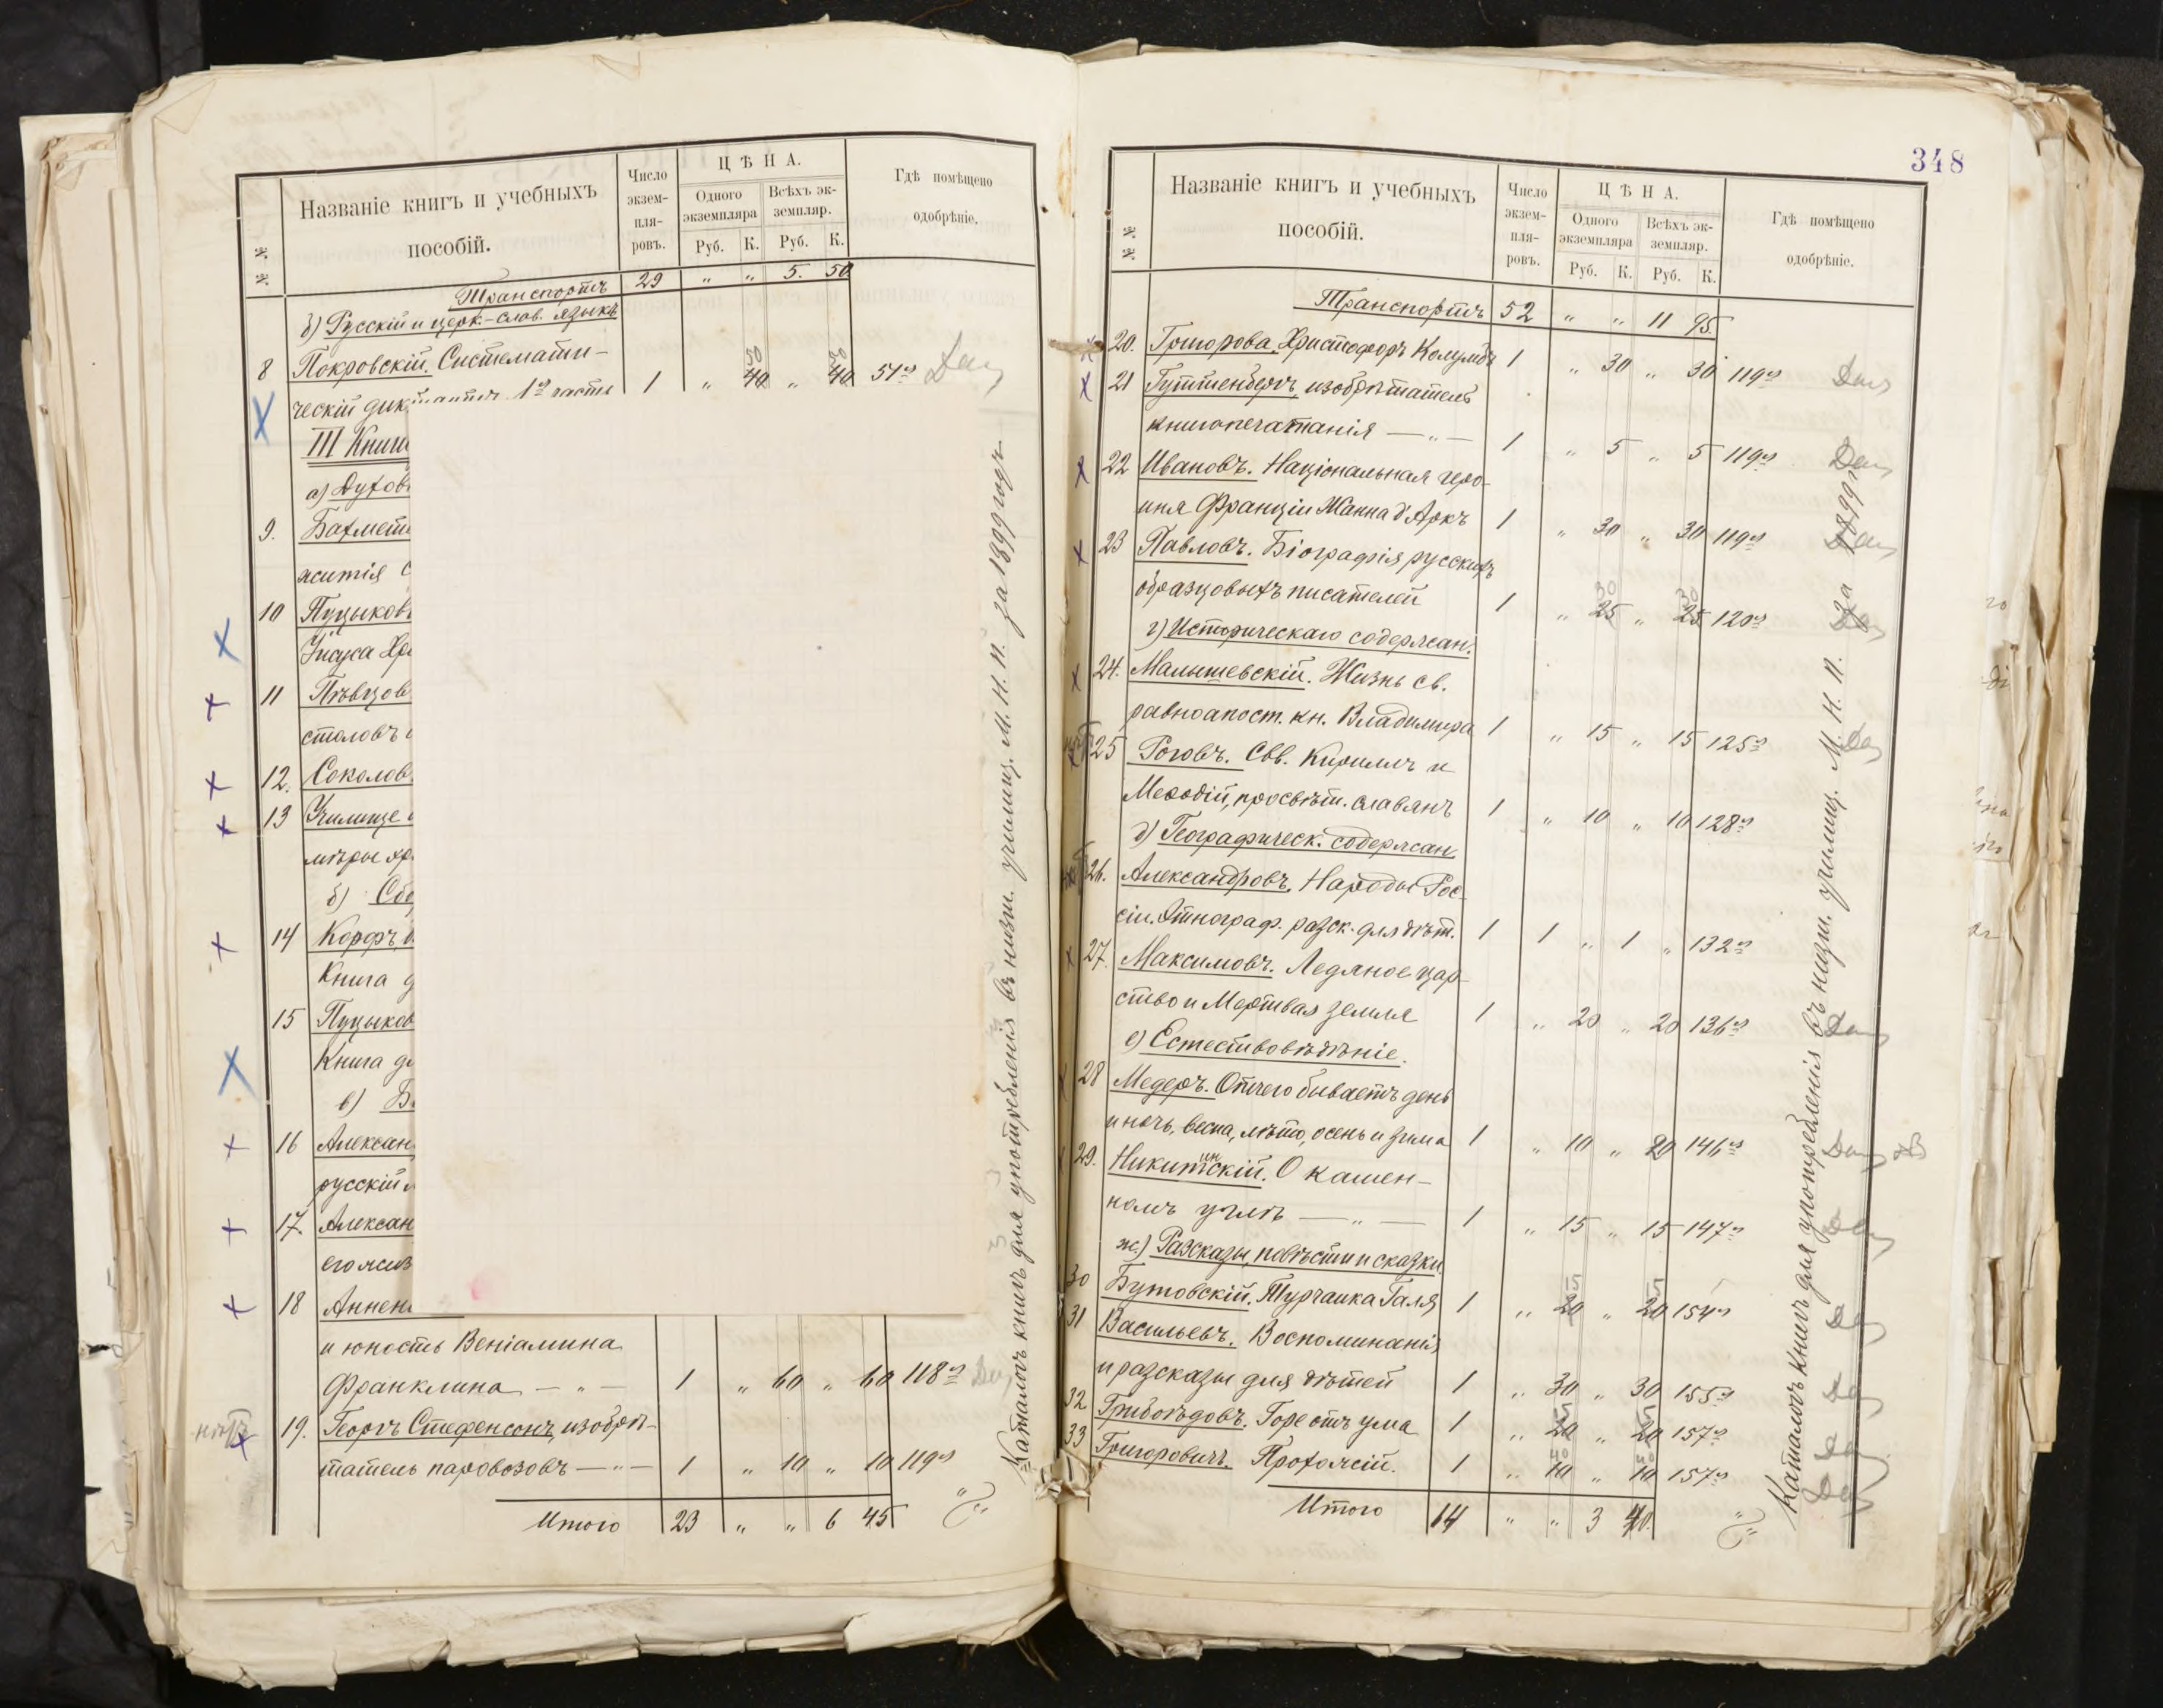 № №
Названіе книгъ и учебныхъ
пособій.
Число
экзем-
пля-
ровъ.
ЦѢНА.
Одного
экземпляра
Всѣхъ эк-
земпляр.
Руб. К. Руб. К.
Гдѣ помѣщено
одобрѣніе.
Транспортъ 29 " " 5. 50
б) Русскій и церк.-слав. языкъ
8 Покровскій. Системати-
ческій диктантъ 1я часть 1 " 40 " 40 51 стр
III Книги
а) Духов
9. Бахмет
житія С
10 Пуцыков
Іисуса Хри
11 Пѣвцов
столовъ
12. Соколов
13 Училище
мѣры хр
б) Сбо
14 Корфъ,
Книга д
15 Пуцыков
Книга д
в) Б
16 Александ
русскій
17. Александ
его жиз
18 Аннен
и юность Веніамина
Франклина — " — 1 " 60 " 60 118
нѣтъ 19. Георгъ Стефенсонъ, изобрѣ-
татель паровозовъ — " — 1 " 10 " 10 119
Итого 23 " " 6 45
Каталогъ книгъ для употребленія въ низш. училищ. М. Н. П. за 1899 годъ
348
№ №
Названіе книгъ и учебныхъ
пособій.
Число
экзем-
пля-
ровъ.
ЦѢНА.
Одного
экземпляра
Всѣхъ эк-
земпляр.
Руб. К. Руб. К.
Гдѣ помѣщено
одобрѣніе.
Транспортъ 52 " " 11 95.
20. Григорова. Христофоръ Колумбъ 1 " 30 " 30 119
21 Гуттенбергъ, изобрѣтатель
книгопечатанія — " — 1 " 5 " 5 119
22 Ивановъ. Національная геро-
иня Франціи Жанна д'Аркъ 1 " 30 " 30 119
23 Павловъ. Біографія русскихъ
образцовыхъ писателей 1 " 25 " 25 120
г) Историческаго содержан.
24. Малышевскій. Жизнь св.
равноапост. кн. Владимира 1 " 15 " 15 125
25 Роговъ. Свв. Кириллъ и
Меѳодій, просвѣт. славянъ 1 " 10 " 10 128
д) Географическ. содержан.
26. Александровъ. Народы Рос-
сіи. Этнограф. разск. для дѣт. 1 1 " 1 " 132
27. Максимовъ. Ледяное цар-
ство и Мертвая земля 1 " 20 " 20 136
е) Естествовѣдѣніе.
28 Медеръ. Отчего бываетъ день
и ночь, весна, лѣто, осень и зима 1 " 10 " 20 146
29. Никитинскій. О камен-
номъ углѣ — " — 1 " 15 " 15 147
ж) Разсказы, повѣсти и сказки
30 Бутовскій. Турчанка Галя 1 " 20 " 20 154
31 Васильевъ. Воспоминанія
и разсказы для дѣтей 1 " 30 " 30 155
32 Грибоѣдовъ. Горе отъ ума 1 " 20 " 20 157
33 Григоровичъ. Прохожій. 1 " 10 " 10 157
Итого 14 " " 3 40.
Каталогъ книгъ для употребленія въ низш. училищ. М. Н. П. за 1899 г.